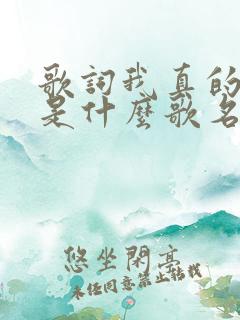 歌詞我真的
是什麼歌名
悠坐閑亭
未經同意禁止轉載